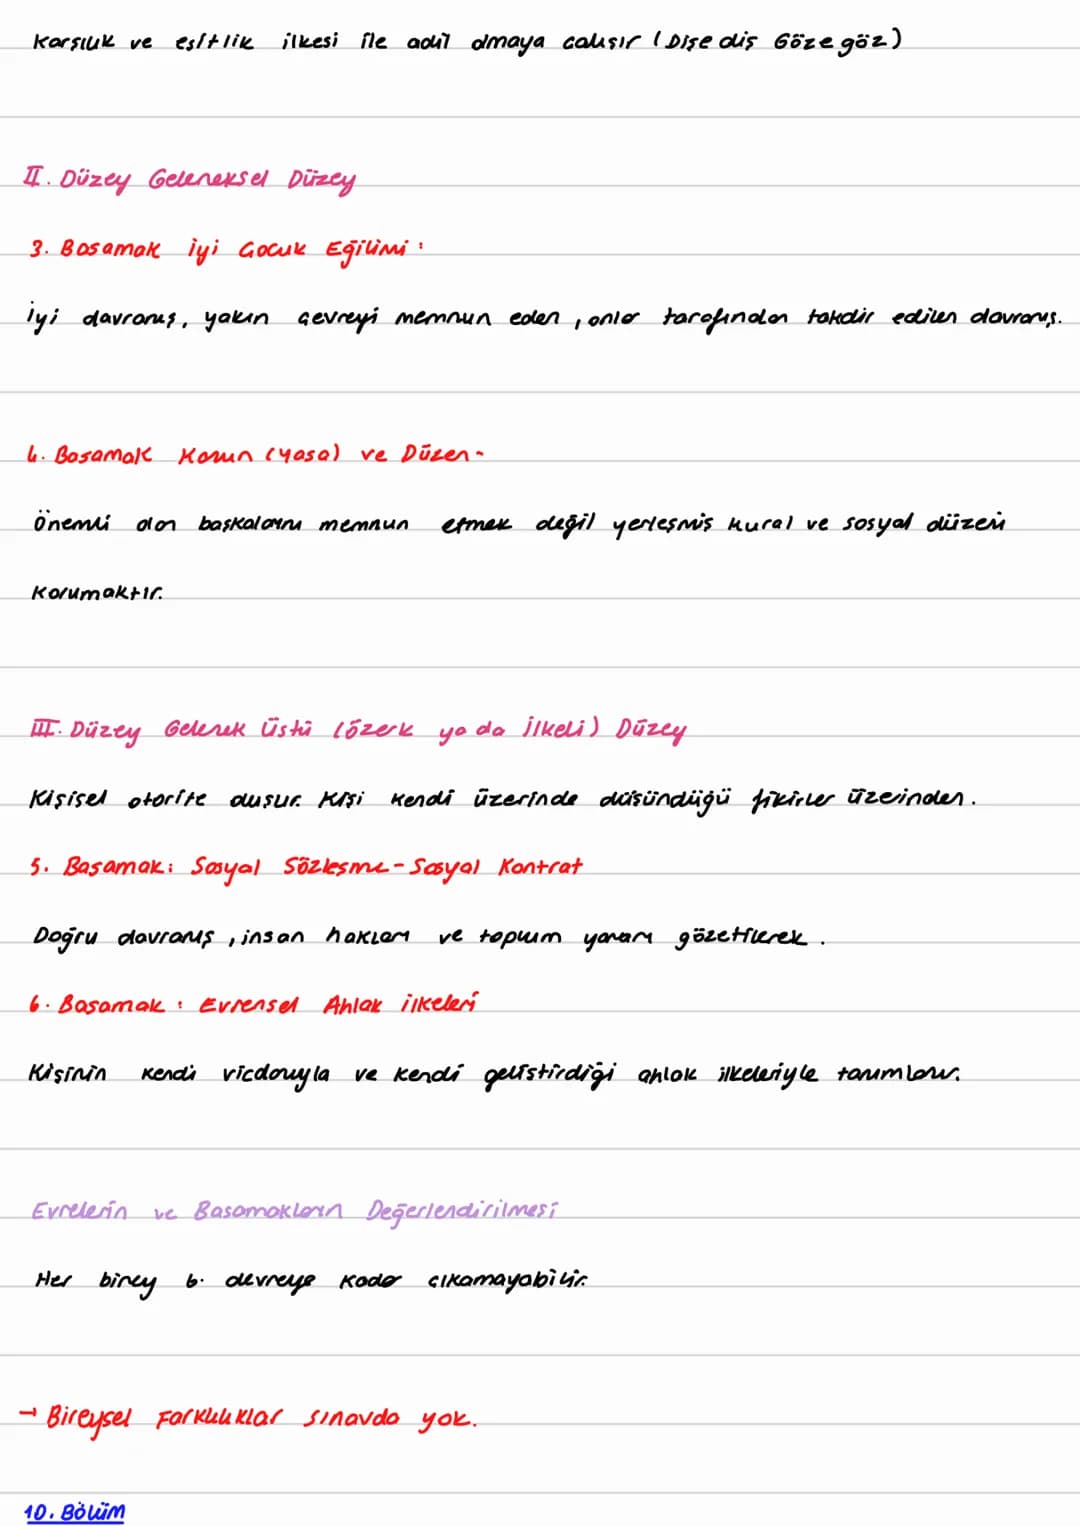 Karşılık ve eşitlik ilkesi ile adil olmaya çalışır (Dişe diş Göze göz)
II. Düzey Geleneksel Düzey
3. Basamak İyi Çocuk Eğilimi:
İyi davranış, yakın çevreyi memnun eden, onlar tarafından takdir edilen davranış.
4. Basamak Kanun (Yasa) ve Düzen-
Önemli olan başkalarını memnun etmek değil yerleşmiş kural ve sosyal düzeni
Korumaktır.
III. Düzey Gelenek Üstü (özerk ya da İlkeli) Düzey
Kişisel otorite oluşur. Kişi kendi üzerinde düşündüğü fikirler üzeinden.
5. Basamak: Sosyal Sözleşme-Sosyal Kontrat
Doğru davranış, insan hakları ve toplum yararı gözetilerek.
6. Basamak: Evrensel Ahlak ilkeleri
Kişinin kendi vicdanıyla ve kendi geliştirdiği ahlak ilkeleriyle tanımlanır.
Evrelerin ve Basamakların Değerlendirilmesi
Her birey 6. devreye kadar çıkamayabilir.
→ Bireysel Farklılıklar sınavda yok.
10. BÖLÜM